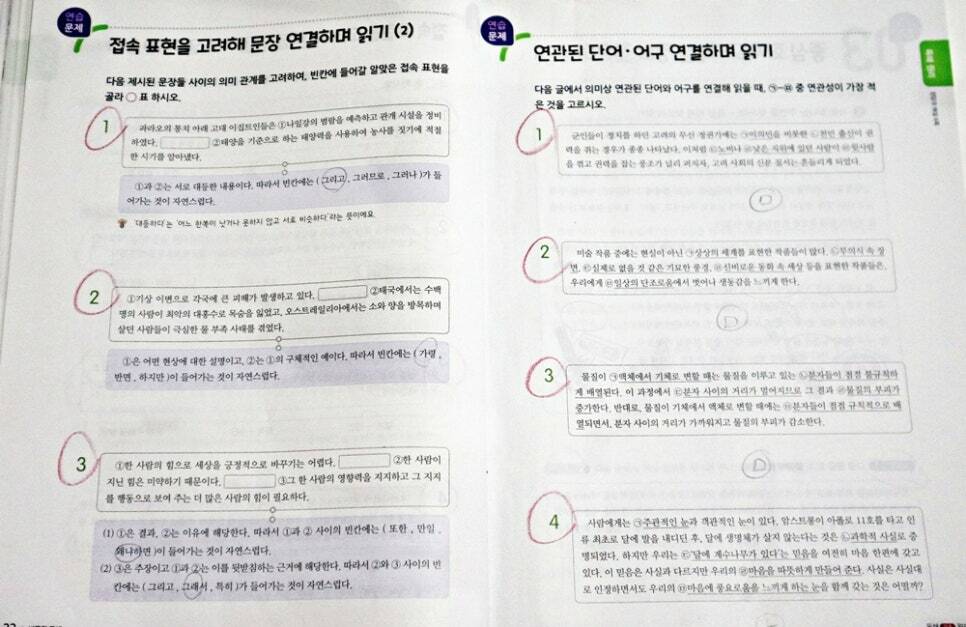 연습
문제
접속 표현을 고려해 문장 연결하며 읽기 (2)
다음 제시된 문장들 사이의 의미 관계를 고려하여, 빈칸에 들어갈 알맞은 접속 표현을
골라 ○ 표 하시오.
1
파라오의 통치 아래 고대 이집트인들은 ①나일강의 범람을 예측하고 관개 시설을 정비
하였다. ②태양을 기준으로 하는 태양력을 사용하여 농사를 짓기에 적절
한 시기를 알아냈다.
①과 ②는 서로 대등한 내용이다. 따라서 빈칸에는 ( 그리고 , 그러므로 , 그러나 )가 들
어가는 것이 자연스럽다.
'대등하다'는 '어느 한쪽이 낫거나 못하지 않고 서로 비슷하다'라는 뜻이에요.
2
①기상 이변으로 각국에 큰 피해가 발생하고 있다. ②태국에서는 수백
명의 사람이 최악의 대홍수로 목숨을 잃었고, 오스트레일리아에서는 소와 양을 방목하며
살던 사람들이 극심한 물 부족 사태를 겪었다.
①은 어떤 현상에 대한 설명이고, ②는 ①의 구체적인 예이다. 따라서 빈칸에는 ( 가령 ,
반면 , 하지만 )이 들어가는 것이 자연스럽다.
3
①한 사람의 힘으로 세상을 긍정적으로 바꾸기는 어렵다. ②한 사람이
지닌 힘은 미약하기 때문이다. ③그 한 사람의 영향력을 지지하고 그 지지
를 행동으로 보여 주는 더 많은 사람의 힘이 필요하다.
(1) ①은 결과, ②는 이유에 해당한다. 따라서 ①과 ② 사이의 빈칸에는 ( 또한 , 만일 ,
왜냐하면 )이 들어가는 것이 자연스럽다.
(2) ③은 주장이고 ①과 ②는 이를 뒷받침하는 근거에 해당한다. 따라서 ②와 ③ 사이의 빈
칸에는 ( 그리고 , 그래서 , 특히 )가 들어가는 것이 자연스럽다.
연습
문제
연관된 단어·어구 연결하며 읽기
다음 글에서 의미상 연관된 단어와 어구를 연결해 읽을 때, ㉠~㉤ 중 연관성이 가장 적
은 것을 고르시오.
1
군인들이 정치를 하던 고려의 무신 정권기에는 ㉠이의민을 비롯한 ㉡천민 출신이 권
력을 쥐는 경우가 종종 나타났다. 이처럼 ㉢노비나 ㉣낮은 지위에 있던 사람이 ㉤윗사람
을 꺾고 권력을 잡는 풍조가 널리 퍼지자, 고려 사회의 신분 질서는 흔들리게 되었다.
2
미술 작품 중에는 현실이 아닌 ㉠상상의 세계를 표현한 작품들이 많다. ㉡무의식 속 장
면, ㉢실제로 없을 것 같은 기묘한 풍경, ㉣신비로운 동화 속 세상 등을 표현한 작품들은,
우리에게 ㉤일상의 단조로움에서 벗어나 생동감을 느끼게 한다.
3
물질이 ㉠액체에서 기체로 변할 때는 물질을 이루고 있는 ㉡분자들이 점점 불규칙하
게 배열된다. 이 과정에서 ㉢분자 사이의 거리가 멀어지므로 그 결과 ㉣물질의 부피가
증가한다. 반대로, 물질이 기체에서 액체로 변할 때에는 ㉤분자들이 점점 규칙적으로 배
열되면서, 분자 사이의 거리가 가까워지고 물질의 부피가 감소한다.
4
사람에게는 ㉠주관적인 눈과 객관적인 눈이 있다. 암스트롱이 아폴로 11호를 타고 인
류 최초로 달에 발을 내디딘 후, 달에 생명체가 살지 않는다는 것은 ㉡과학적 사실로 증
명되었다. 하지만 우리는 ㉢'달에 계수나무가 있다'는 믿음을 여전히 마음 한편에 갖고
있다. 이 믿음은 사실과 다르지만 우리의 ㉣마음을 따뜻하게 만들어 준다. 사실은 사실대
로 인정하면서도 우리의 ㉤마음에 풍요로움을 느끼게 하는 눈을 함께 갖는 것은 어떨까?